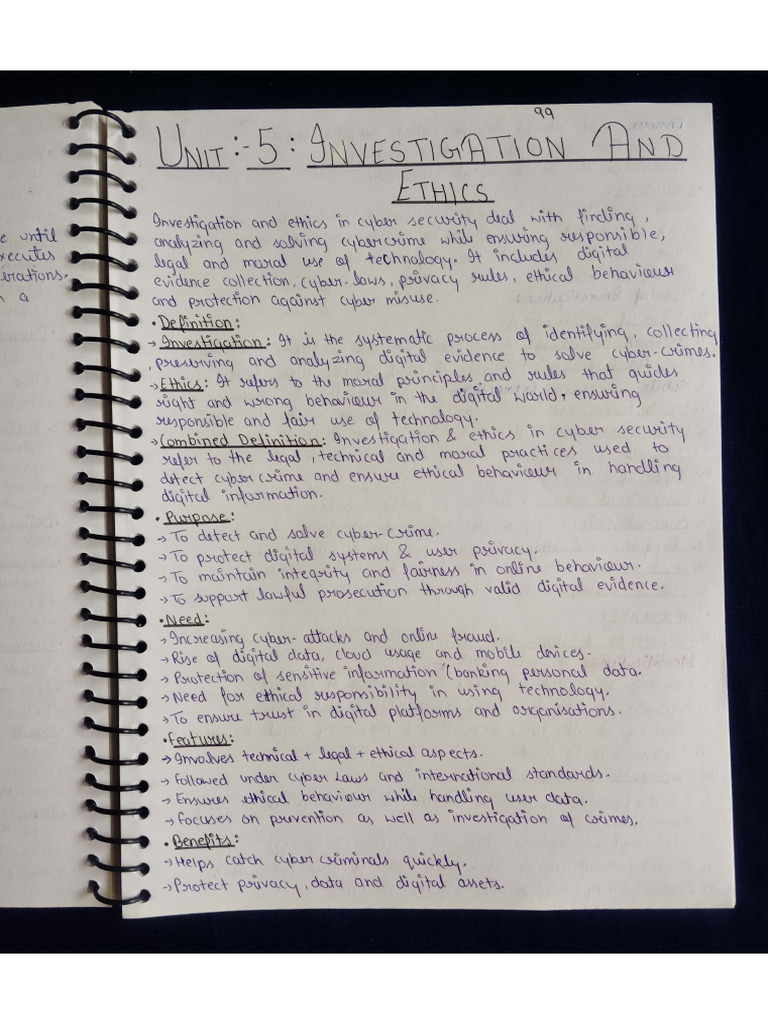 e until
xecutes
erations.
n a
99
UNIT :- 5 : INVESTIGATION AND
ETHICS
Investigation and ethics in cyber security deal with finding,
analyzing and solving cybercrime while ensuring responsible,
legal and moral use of technology. It includes digital
evidence collection, cyber-laws, privacy rules, ethical behaviour
and protection against cyber misuse.
• Definition:
→ Investigation: It is the systematic process of identifying, collecting
, preserving and analyzing digital evidence to solve cyber-crimes.
→ Ethics: It refers to the moral principles and rules that guides
right and wrong behaviour in the digital world, ensuring
responsible and fair use of technology.
→ Combined Definition: Investigation & ethics in cyber security
refer to the legal, technical and moral practices used to
detect cyber crime and ensure ethical behaviour in handling
digital information.
• Purpose:
→ To detect and solve cyber-crime.
→ To protect digital systems & user privacy.
→ To maintain integrity and fairness in online behaviour.
→ To support lawful prosecution through valid digital evidence.
• Need:
→ Increasing cyber-attacks and online fraud.
→ Rise of digital data, cloud usage and mobile devices.
→ Protection of sensitive information (banking personal data.
→ Need for ethical responsibility in using technology.
→ To ensure trust in digital platforms and organisations.
• Features:
→ Involves technical + legal + ethical aspects.
→ followed under cyber Laws and international standards.
→ Ensures ethical behaviour while handling user data.
→ focuses on prevention as well as investigation of crimes.
• Benefits:
→ Helps catch cyber criminals quickly.
→ Protect privacy, data and digital assets.